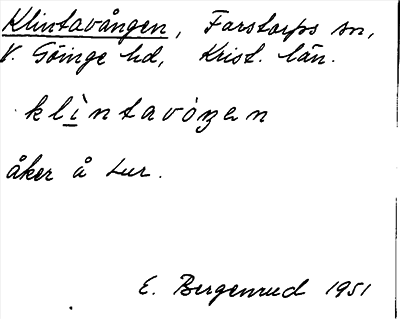 Klintavången, Farstorps sn,
V. Göinge hd, Krist. län.
klìntavóŋen
åker å Lur.
E. Bergenrud 1951